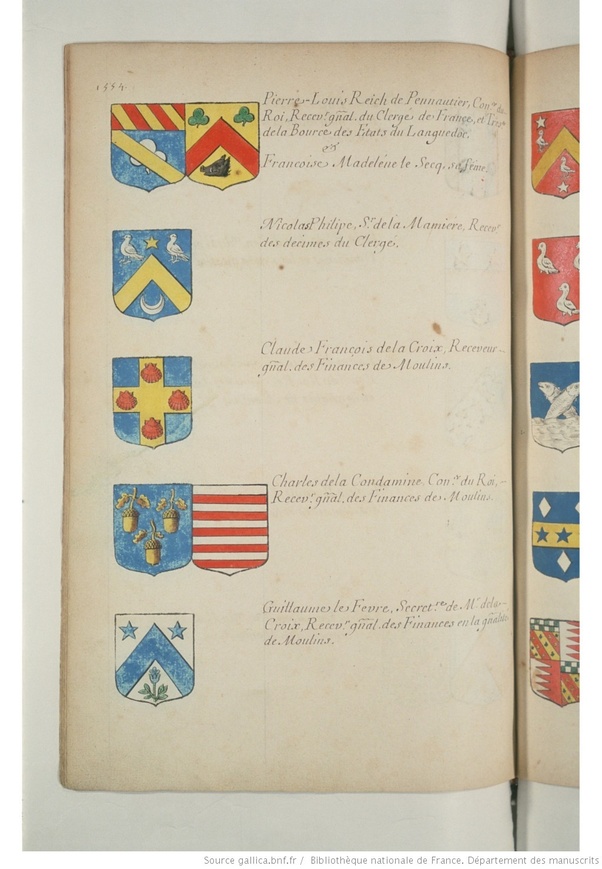 1554.
Pierre-Louis Reich de Pennautier, Con.er du
Roi, Recev.r gñal. du Clergé de France, et Tres.r
de la Bource des Etats du Languedoc.
et
Francoise Madelene le Secq, sa feme.
Nicolas Philipe, S.r de la Mamiere, Recev.r
des decimes du Clergé.
Claude François de la Croix, Receveur
gñal. des Finances de Moulins.
Charles de la Condamine, Con.er du Roi,
Recev.r gñal. des Finances de Moulins.
Guillaume le Fevre, Secret.re de M.r de la
Croix, Recev.r gñal. des Finances en la gñalité
de Moulins.
Source gallica.bnf.fr / Bibliothèque nationale de France. Département des manuscrits